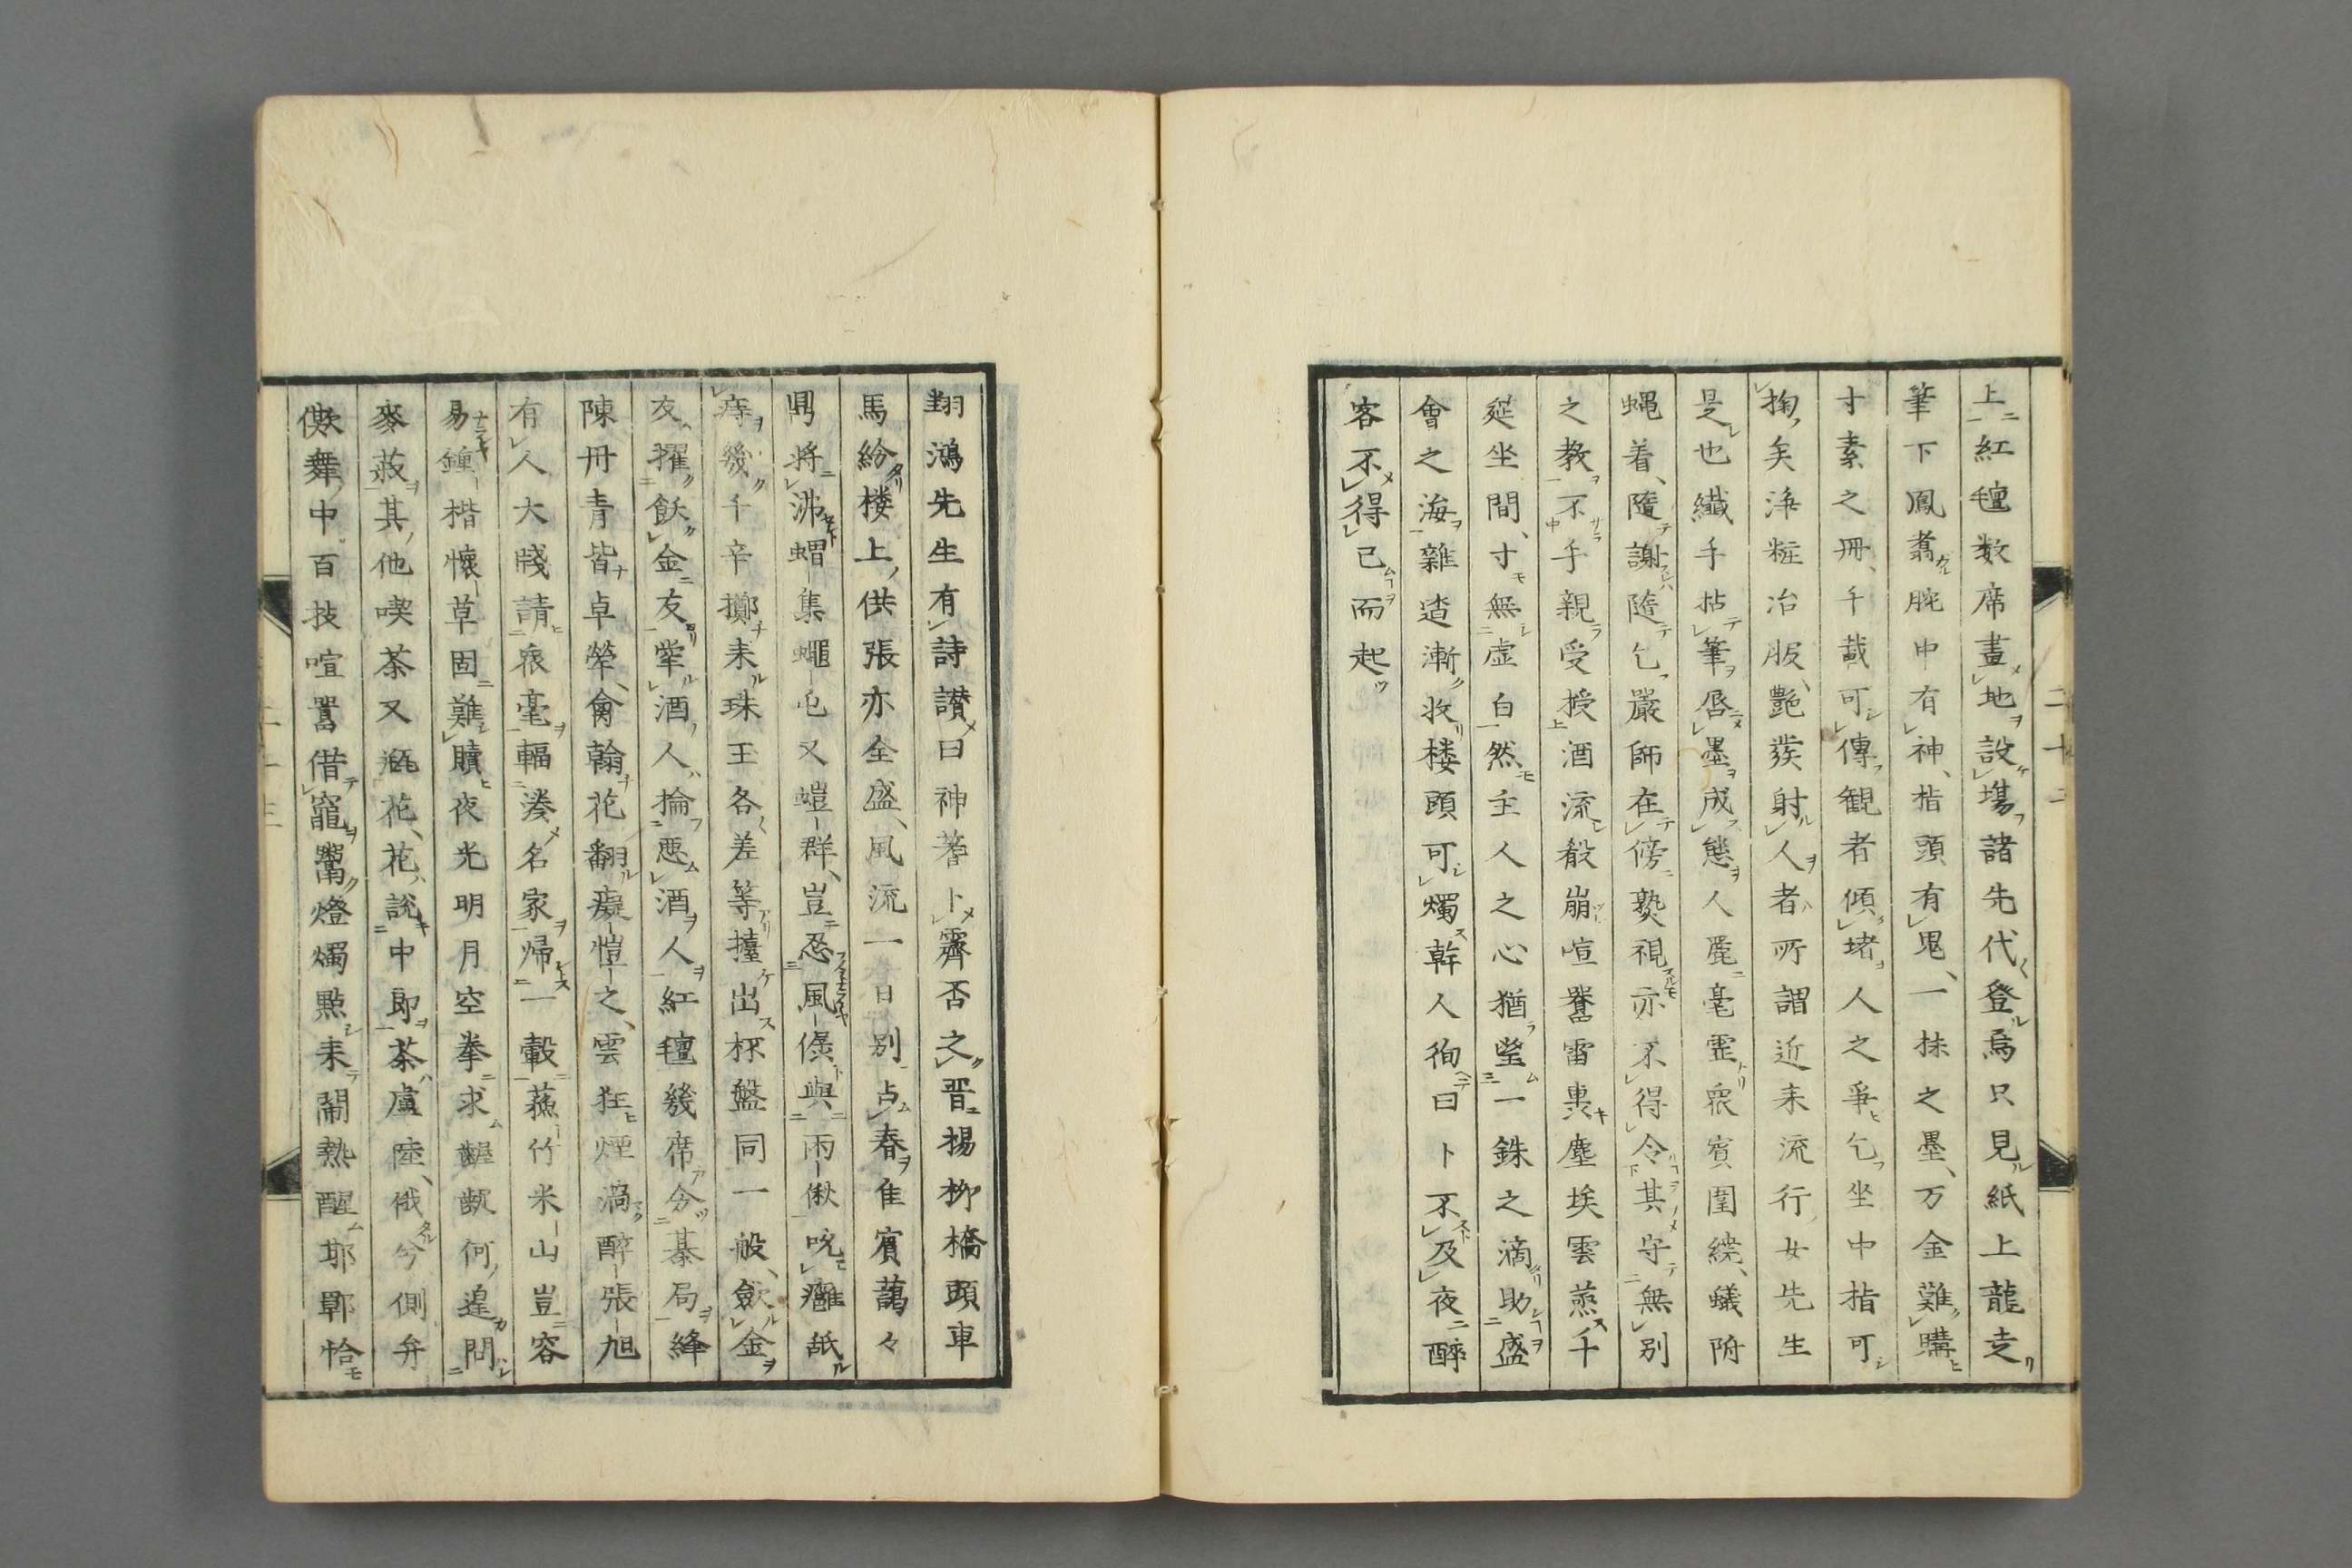 上紅氊数席畫地設塲諸先代登焉只見紙上龍走
筆下鳳翥腕中有神指頭有鬼一抹之墨万金難購
寸素之冊千載可傳観者傾堵人之爭乞坐中指可
掬矣浄粧冶服艶発射人者所謂近来流行女先生
是也纎手拈筆唇墨成態人麗毫霊衆賓圍繞蟻附
蝿着隨謝隨乞嚴師在傍熟視亦不得令其守無别
之教不手親受授酒流殽崩喧豗雷轟塵埃雲蒸千
莚坐間寸無虚白然主人之心猶望一銖之滴助盛
會之海雜遝漸收楼頭可燭幹人徇曰卜不及夜醉
客不得已而起
翔鴻先生有詩讃曰神蓍卜霽否之晋楊柳橋頭車
馬紛楼上供張亦全盛風流一别占春隹賓藹々
鼎将沸蝟集蠅屯又螘群豈忍風僝與雨僽吮癰舐
痔幾千辛擲来珠玉各差等擡出杯盤同一般歛金
友擢飫金友犖酒人掄悪酒人紅氊幾席分棊局絳
陳丹青皆卓犖禽翰花翻癡愷之雲狂煙渦醉張旭
有人大牋請衆毫輻湊名家帰一轂蘓竹米山豈容
易鍾楷懐草固難贖夜光明月空拳求齷齪何遑問
麥菽其他喫茶又瓶花花説中郎茶盧陸俄分側弁
僛舞中百技喧囂借竉鬻燈燭點来鬧熱醒耶鄲恰
二十二
二十三